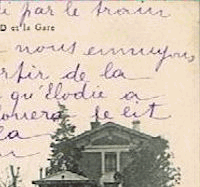 i par le train
D et la Gare
nous ennuyons
rtir de la
qu'Elodie a
ouera le lit
la